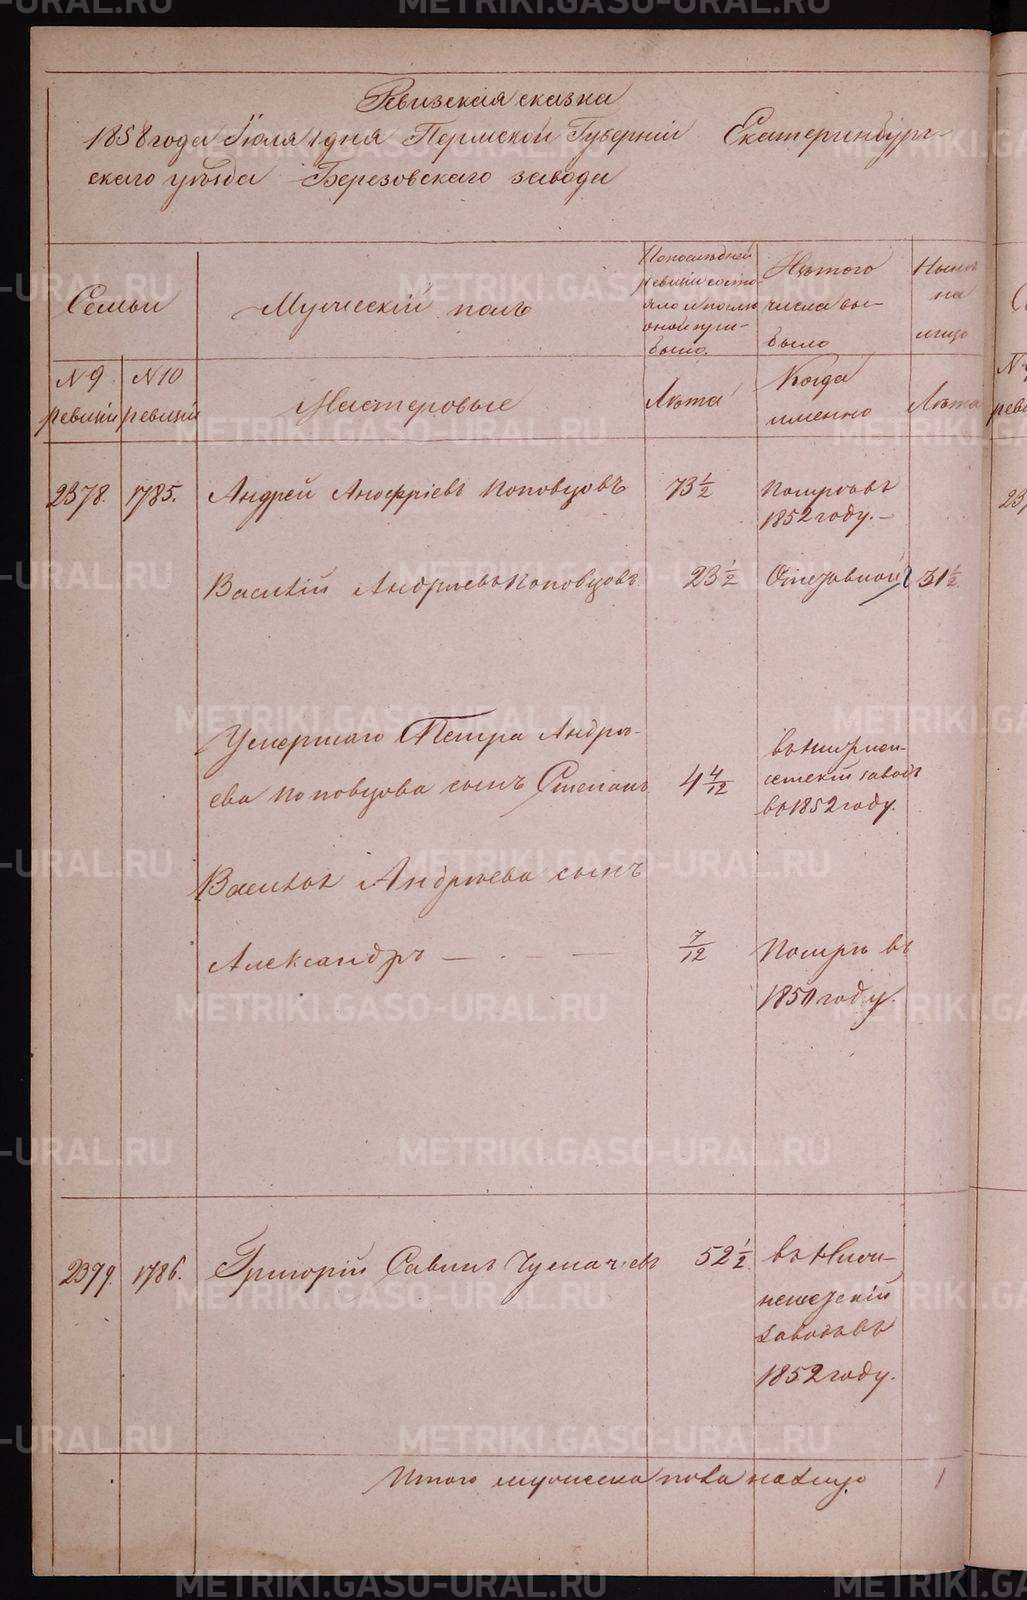 Ревизская сказка
1858 года Іюля 1 дня Пермской Губерніи Екатеринбург-
скаго уѣзда Березовскаго завода
Семьи
Мужескій полъ
По послѣдней
ревизіи состо-
яло и послѣ
оной при-
было.
Изъ того
числа вы-
было
Нынѣ
на
лицо
№ 9
ревизіи
№ 10
ревизіи
Мастеровые
Лѣта
Когда
именно
Лѣта
2378. 1785. Андрей Анофріевъ Поповцовъ 73 1/2 Померъ въ
1852 году.
Василій Андреевъ Поповцовъ 23 1/2 Отставной 31 1/2
Умершаго Петра Андрѣ-
ева Поповцова сынъ Степанъ 4 4/12
заводъ
въ 1852 году.
Василья Андрѣева сынъ
Александръ 7/12 Помръ въ
1850 году.
2379. 1786. Григорій Савинъ Чумачевъ 52 1/2 въ Нижн-
заводъ въ
1852 году.
Итого мужеска пола на лицо 1
METRIKI.GASO-URAL.RU